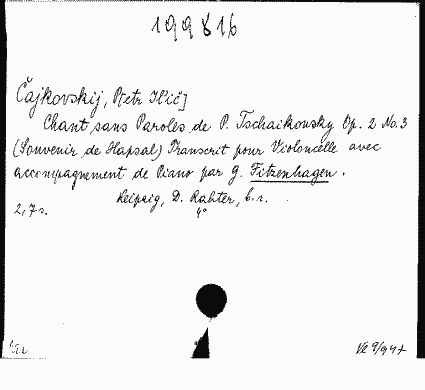 199816
Čajkovskij, P[etr Il'ič]
Chant sans Paroles de P. Tschaikowsky Op. 2 No. 3
(Souvenir de Hapsal) Transcrit pour Violoncelle avec
accompagnement de Piano par G. Fitzenhagen.
Leipzig, D. Rahter, b.r.
2,7 s. 4°